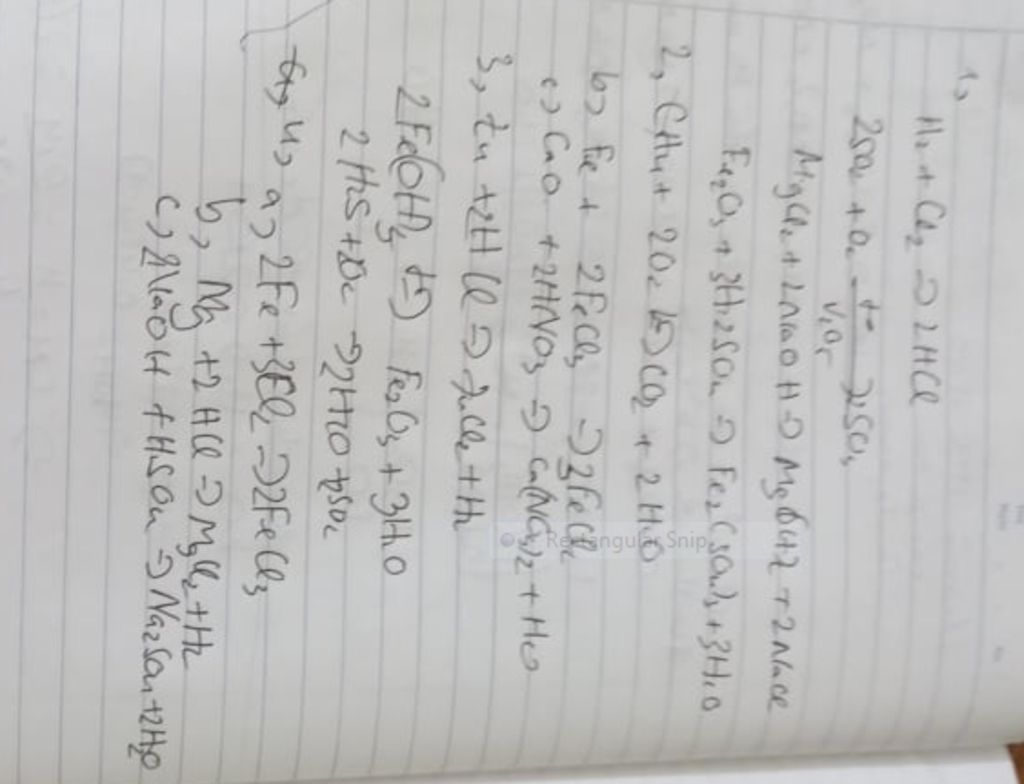 1,
H₂ + Cl₂ => 2HCl
2SO₂ + O₂ —t° V₂O₅→ 2SO₃
MgCl₂ + 2NaOH => Mg(OH)2 + 2NaCl
Fe₂O₃ + 3H₂SO₄ => Fe₂(SO₄)₃ + 3H₂O
2, CH₄ + 2O₂ t°=> CO₂ + 2H₂O
b, Fe + 2FeCl₃ => 3FeCl₂
c, CaO + 2HNO₃ => Ca(NO₃)₂ + H₂O
3, Zn + 2HCl => ZnCl₂ + H₂
2Fe(OH)₃ t°=> Fe₂O₃ + 3H₂O
2H₂S + O₂ => 2H₂O + SO₂
4, a, 2Fe + 3Cl₂ => 2FeCl₃
b, Mg + 2HCl => MgCl₂ + H₂
c, 2NaOH + HSO₄ => Na₂SO₄ + 2H₂O
Rectangular Snip